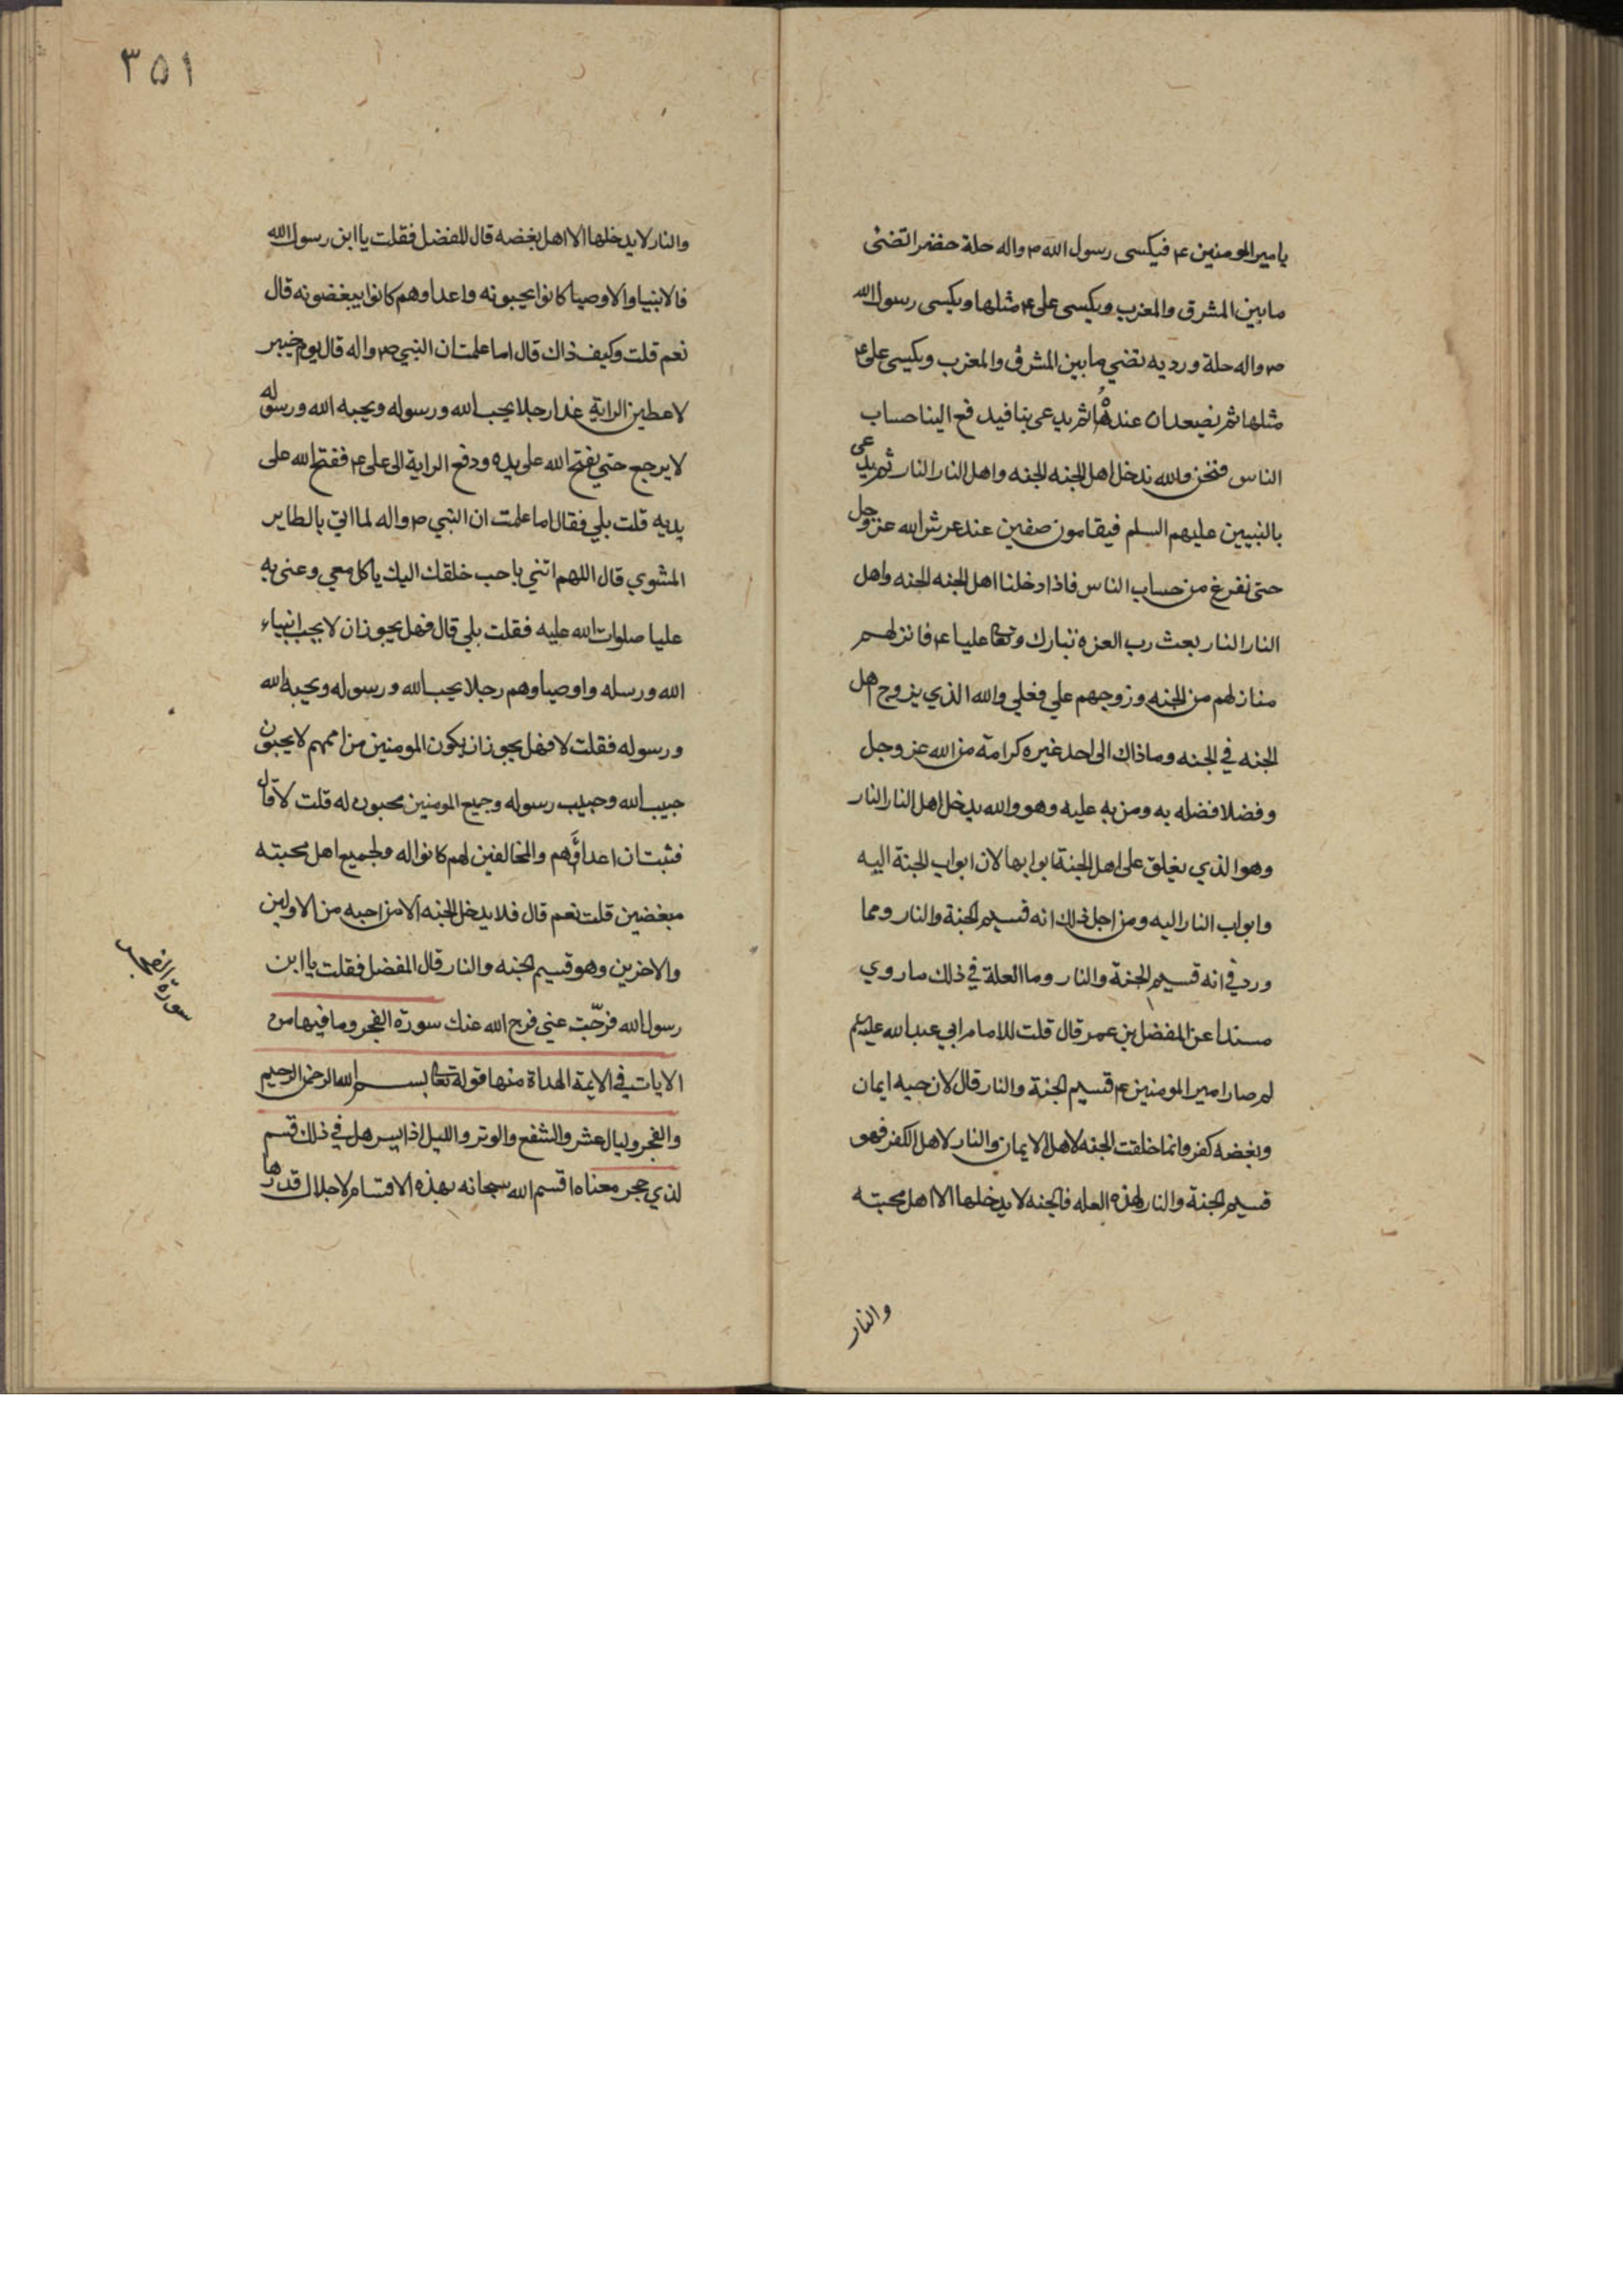 يامير المومنين ع فيكسى رسول الله ص واله حلة خضرا تضئ
ما بين المشرق والمغرب ويكسى على ع مثلها ويكسى رسول الله
ص واله حلة ورديه تضئ ما بين المشرق والمغرب ويكسى على ع
مثلها ثم نصعدان عندها ثم يدعى بنا فيدفع الينا حساب
الناس فنحن والله ندخل اهل الجنه الجنه واهل النار النار ثم يدعى
بالنبيين عليهم السلم فيقامون صفين عند عرش الله عز وجل
حتى نفرغ من حساب الناس فاذا دخلنا اهل الجنه الجنه واهل
النار النار بعث رب العزه تبارك وتعا عليا ع فانزلهم
منازلهم من الجنه وزوجهم على فعلي والله الذي يزوج اهل
الجنه في الجنه وما ذاك الى احد غيره كرامة من الله عز وجل
وفضلا فضله به ومن به عليه وهو والله يدخل اهل النار النار
وهو الذي يغلق على اهل الجنة ابوابها لان ابواب الجنة اليه
وابواب النار اليه ومن اجل ذلك انه قسيم الجنة والنار ومما
ورد في انه قسيم الجنة والنار وما العلة في ذلك ما روي
مسندا عن المفضل بن عمر قال قلت للامام ابي عبد الله عليه السلم
لم صار امير المومنين ع قسيم الجنة والنار قال لان حبه ايمان
وبغضه كفر وانما خلقت الجنه لاهل الايمان والنار لاهل الكفر فهو
قسيم الجنة والنار لهذه العله فالجنه لا يدخلها الا اهل محبته
والنار
٣٥١
والنار لا يدخلها الا اهل بغضه قال المفضل فقلت يا ابن رسول الله
فالانبيا والاوصيا كانوا يحبونه واعداوهم كانوا يبغضونه قال
نعم قلت وكيف ذاك قال اما علمت ان النبي ص واله قال يوم خيبر
لاعطين الراية غدا رجلا يحب الله ورسوله ويحبه الله ورسوله
لا يرجع حتي يفتح الله على يده ودفع الراية الى على ع ففتح الله على
يديه قلت بلي فقال اما علمت ان النبي ص واله لما اتي بالطاير
المشوي قال اللهم اتني باحب خلقك اليك ياكل معي وعنى به
عليا صلوات الله عليه فقلت بلي قال فهل يجوز ان لا يحب انبياء
الله ورسله واوصياوهم رجلا يحب الله ورسوله ويحبه الله
ورسوله فقلت لا فهل يجوز ان يكون المومنين من اممهم لا يحبون
حبيب الله وحبيب رسوله وجميع المومنين محبون له قلت لا قال
فثبت ان اعداؤهم والمخالفين لهم كانوا له ولجميع اهل محبته
مبغضين قلت نعم قال فلا يدخل الجنه الا من احبه من الاولين
والاخرين وهو قسيم الجنه والنار قال المفضل فقلت يا ابن
رسول الله فرّجت عني فرج الله عنك سورة الفجر وما فيها من
الايات في الايمة الهداة منها قوله تعا بسم الله الرحمن الرحيم
والفجر وليال عشر والشفع والوتر والليل اذا يسر هل في ذلك قسم
لذي حجر معناه اقسم الله سبحانه بهذه الاقسام لاجلال قدرها
سورة الفجر